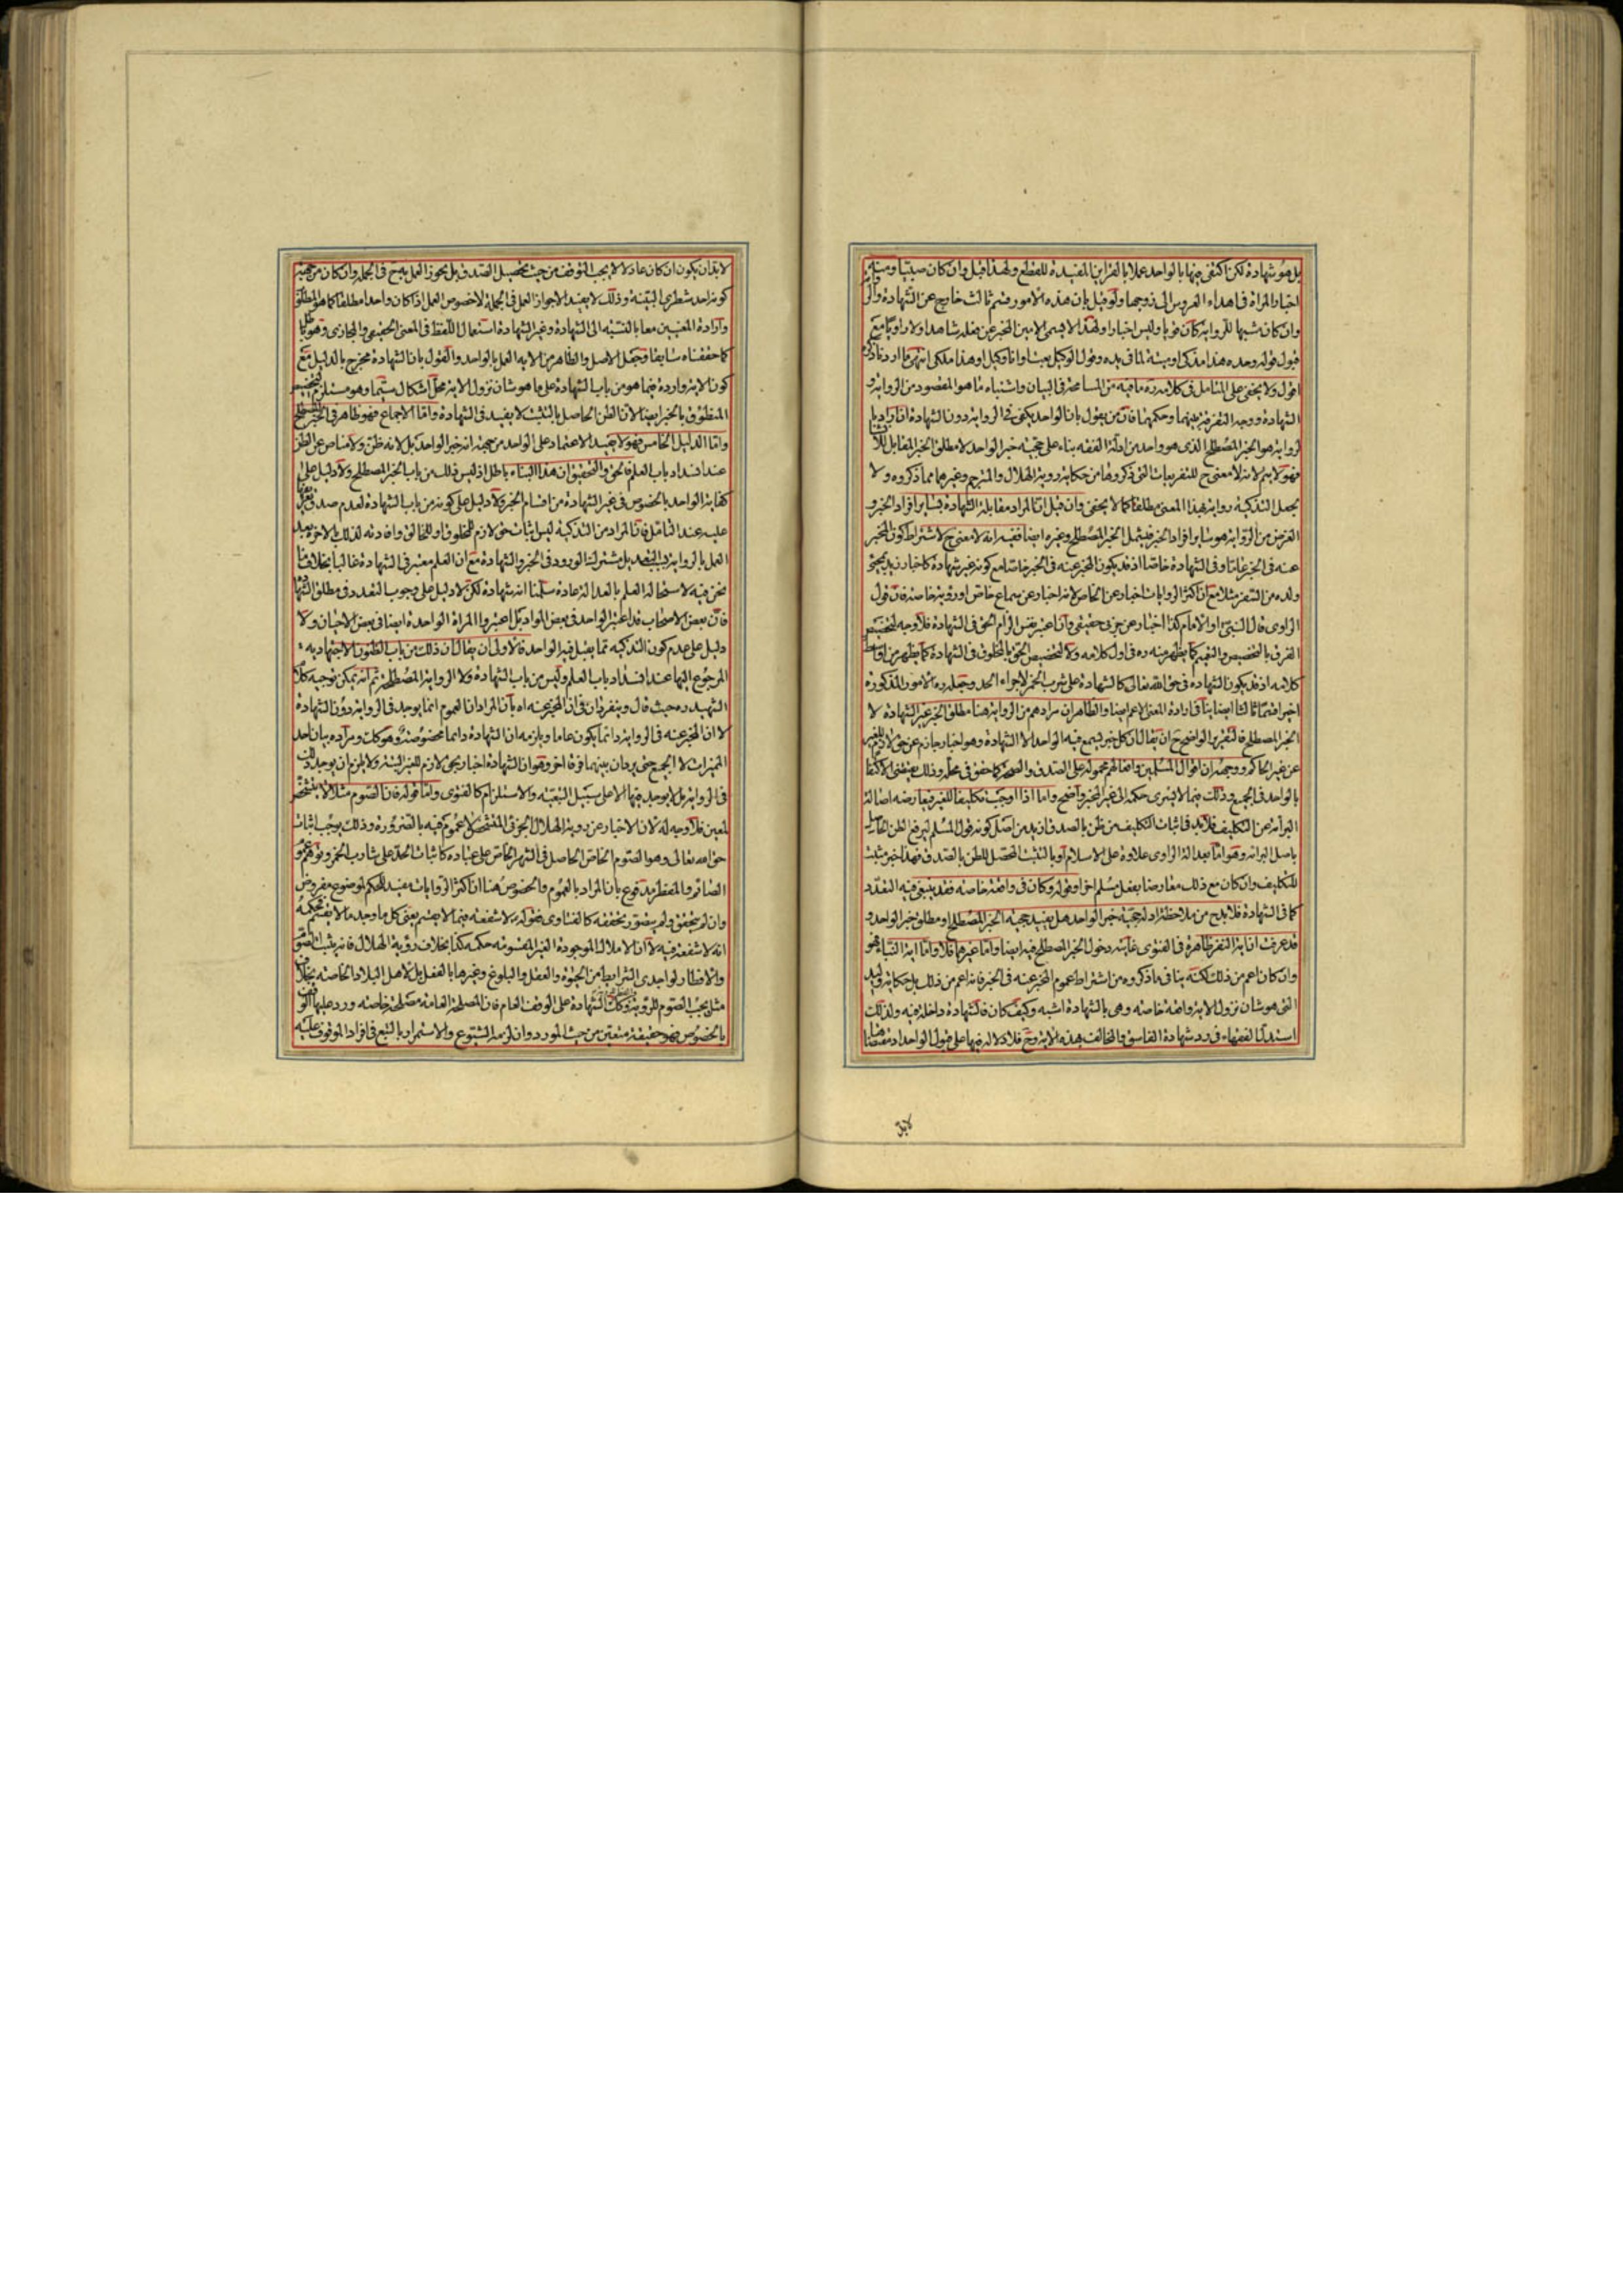 بل هو شهادة لكن اكتفى فيها بالواحد عملا بالقراين المفيدة للقطع ولهذا قبل وان كان صبيا ومثله
اخبار المراة فى اهداء العروس الى زوجها ولو قيل بان هذه الامور قسم ثالث خارج عن الشهادة والر
وان كان شبهها للرواية كان قويا وليس اخبارا ولهذا لا يسمى الامين المخبر عن فعله شاهدا ولا راويا مع
قبول قوله وحده هذا مذكى او ميتة لما فى يده وقول الوكيل بعت او انا وكيل او هذا ملكى انتهى ما اردنا ذكره
اقول ولا يخفى على المتامل فى كلامه ره ما فيه من المسامحة فى البيان واشتباه ما هو المقصود من الرواية و
الشهادة ووجه التفرقة بينهما وحكمهما فان من يقول بان الواحد يكفى فى الرواية دون الشهادة ان اراد با
لرواية هو الخبر المصطلح الذى هو واحد من ادلة الفقه بناء على حجية خبر الواحد لا مطلق الخبر المقابل للانشا
فهو لا يتم لانه لا معنى ح للتفريعات التى ذكروها من حكاية روية الهلال والمترجم وغيرهما مما ذكروه ولا
يجعل التذكية رواية بهذا المعنى مطلقا كما لا يخفى وان قيل ان المراد مقابلة الشهادة بساير افراد الخبر و
الغرض من الرواية هو ساير افراد الخبر فيشمل الخبر المصطلح وغيره ايضا ففيه انه لا معنى ح لاشتراط كون المخبر
عنه فى الخبر عاما وفى الشهادة خاصا اذ قد يكون المخبر عنه فى الخبر خاصا مع كونه غير شهادة كاخبار زيد بمجئ
ولده من السفر مثلا مع ان اكثر الروايات اخبار عن الخاص لانه اخبار عن سماع خاص او روية خاصة فان قول
الراوى قال النبى او الامام كذا اخبار عن جزئى حقيقى وان اعتبر نفس الزام الحق فى الشهادة فلا وجه لتخصيص
الفرق بالتخصيص والتعميم كما يظهر منه ره فى اول كلامه ولا لتخصيص الحق بالمخلوق فى الشهادة كما يظهر من اواسط
كلامه اذ قد يكون الشهادة فى حق الله تعالى كالشهادة على شرب الخمر لاجراء الحد وجعله ره الامور المذكورة
اخيرا قسما ثالثا ايضا ينافى ارادة المعنى الاعم ايضا والظاهر ان مرادهم من الرواية هنا مطلق الخبر غير الشهادة لا
الخبر المصطلح فالتقرير الواضح ح ان يقال ان كل خبر يسمع فيه الواحد الا الشهادة وهو اخبار جازم عن حق لازم للغير
عن غير الحاكم ووجهه ان اقوال المسلمين وافعالهم محمولة على الصدق والصحة كما حقق فى محله وذلك يقتضى الاكتفا
بالواحد فى الجميع وذلك فيما لا يسرى حكمه الى غير المخبر واضح واما اذا اوجب تكليفا للغير فيعارضه اصالة
البرائة عن التكليف فلا بد فى اثبات التكليف من ظن بالصدق ازيد من اصل كونه قول المسلم ليرفع الظن الحاصل
باصل البرائة وهو اما بعدالة الراوى علاوة على الاسلام او بالتثبت المحصل للظن بالصدق فهذا خبر مثبت
للتكليف وان كان مع ذلك معارضا بفعل مسلم اخر او قوله وكان فى واقعة خاصة فقد ينبغى فيه التعدد
كما فى الشهادة فلا بد ح من ملاحظة ادلة حجية خبر الواحد هل يفيد حجية الخبر المصطلح او مطلق خبر الواحد و
قد عرفت ان اية النفر ظاهرة فى الفتوى غايته دخول الخبر المصطلح فيه ايضا واما غيرهما فلا واما اية النباء فهو
وان كان اعم من ذلك لكنه ينافى ما ذكروه من اشتراط عموم المخبر عنه فى الخبر فانه اعم من ذلك بل حكاية وليد
التى هو شان نزول الاية واقعة خاصة وهى بالشهادة اشبه وكيف كان فالشهادة داخلة فيه ولذلك
استدل الفقهاء فى رد شهادة الفاسق والمخالف بهذه الاية وح فلا دلالة فيها على قبول الواحد اذ مقتضاها
لابد
لابد ان يكون ان كان عادلا لا يجب التوقف من حيث تحصيل الصدق بل يجوز العمل به ح فى الجملة وان كان من جهة
كونه احد شطرى البينة وذلك لا يفيد الا جواز العمل فى الجملة لا خصوص العمل اذا كان واحدا مطلقا كما هو المطلوب
وارادة المعنيين معا بالنسبة الى الشهادة وغير الشهادة استعمال اللفظ فى المعنى الحقيقى والمجازى وهو باطل
كما حققناه سابقا وجعل الاصل والظاهر من الاية العمل بالواحد والقول بان الشهادة مخرج بالدليل مع
كون الاية واردة فيما هو من باب الشهادة على ما هو شان نزول الاية محل اشكال سيما وهو مستلزم لتخصيص
المنطوق بالخبر ايضا لان الظن الحاصل بالتثبت لا يفيد فى الشهادة واما الاجماع فهو ظاهر فى الخبر المصطلح
واما الدليل الخامس فهو لا يفيد الاعتماد على الواحد من جهة انه خبر الواحد بل لانه ظن ولا مناص عن الظن
عند انسداد باب العلم فالحق والتحقيق ان هذا البناء باطل اذ ليس ذلك من باب الخبر المصطلح ولا دليل على
كفاية الواحد بالخصوص فى غير الشهادة من اقسام الخبر ولا دليل على كونه من باب الشهادة لعدم صدق تعريفها
عليه عند التامل فان المراد من التذكية ليس اثبات حق لازم للمخلوق او للخالق وافادته لذلك بالاخرة بعد
العمل بالرواية لا يفيد بل مشترك الورود فى الخبر والشهادة مع ان العلم معتبر فى الشهادة غالبا بخلاف ما
نحن فيه لاستحالة العلم بالعدالة عادة سلمنا انه شهادة لكن لا دليل على وجوب التعدد فى مطلق الشهادة
فان بعض الاصحاب قد اعتبر الواحد فى بعض المواد بل اعتبروا المراة الواحدة ايضا فى بعض الاحيان ولا
دليل على عدم كون التذكية مما يقبل فيه الواحد فالاولى ان يقال ان ذلك من باب الظنون الاجتهادية
المرجوع اليها عند انسداد باب العلم وليس من باب الشهادة ولا الرواية المصطلحة ثم انه يمكن توجيه كلام
الشهيد ره حيث قال ويفترقان فى ان المخبر عنه اه بان المراد ان العموم انما يوجد فى الرواية دون الشهادة
لا ان المخبر عنه فى الرواية دائما يكون عاما ويلزمه ان الشهادة دائما مخصوصة وهو كك ومراده بيان احد
المميزات لا الجميع حتى يرد ان بينهما فرقا اخر وهو ان الشهادة اخبار بحق لازم للغير البتة ولا يلزم ان يوجد ذلك
فى الرواية بل لا يوجد فيها الا على سبيل التبعية والاستلزام كالفتوى واما قوله فان الصوم مثلا لا يتشخص
لمعين فلا وجه له لان الاخبار عن روية الهلال الجزئى المتشخص لا عموم فيه بالضرورة وذلك يوجب اثبات
حق الله تعالى وهو الصوم الخاص الحاصل فى الشهر الخاص على عباده كاثبات الحد على شارب الخمر وتوهم عموم
الصائم والمفطر مدفوع بان المراد بالعموم والخصوص هنا ان اكثر الروايات مفيد للحكم لموضوع مفروض
وان لم يتحقق ولم يتصور تحققه كالفتاوى فقوله لا شفعة فيما لا يقسم يعنى كل ما وجد ما لا يقسم فحكمه
انه لا شفعة فيه لا ان الاملاك الموجودة الغير المقسومة حكمه كذا بخلاف رؤية الهلال فانه يثبت الصوم
والافطار لواجدى الشرايط من الحيوة والعقل والبلوغ وغيرها بالفعل بل لاهل البلاد الخاصة بخلاف
مثل يجب الصوم للرؤية وكك الشهادة على الوقف العام فان المصلحة العامة مصلحة خاصة ورد عليها الوقف
بالخصوص فهو حقيقة متعين من حيث المورد وان لزمه الشيوع والاستمرار بالتبع فى افراد الموقوف عليه